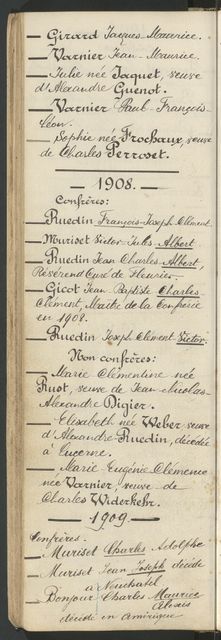 — Girard Jacques Maurice.
— Varnier Jean-Maurice.
— Julie née Jaquet, veuve
d'Alexandre Guenot.
— Varnier Paul-François-
Léon.
— Sophie née Frochaux, veuve
de Charles Perroset.
— 1908. —
Confrères:
— Ruedin François-Joseph Clément.
— Muriset Victor-Jules-Albert
— Ruedin Jean Charles Albert,
Révérend Curé de Fleurier.
— Gicot Jean-Baptiste Charles-
Clément, Maître de la Confrérie
en 1908.
— Ruedin Joseph Clément Victor.
Non confrères:
— Marie Clémentine née
Ruot, veuve de Jean-Nicolas-
Alexandre Digier.
— Elisabeth née Weber veuve
d'Alexandre-Ruedin, décédée
à Lucerne.
— Marie Eugénie Clémence
née Varnier, veuve de
Charles Widerkehr.
— 1909 —
Confrères.
— Muriset Charles Adolphe
— Muriset Jean Joseph décédé
à Neuchâtel
— Bonjour Charles Maurice
Alexis
décédé en Amérique